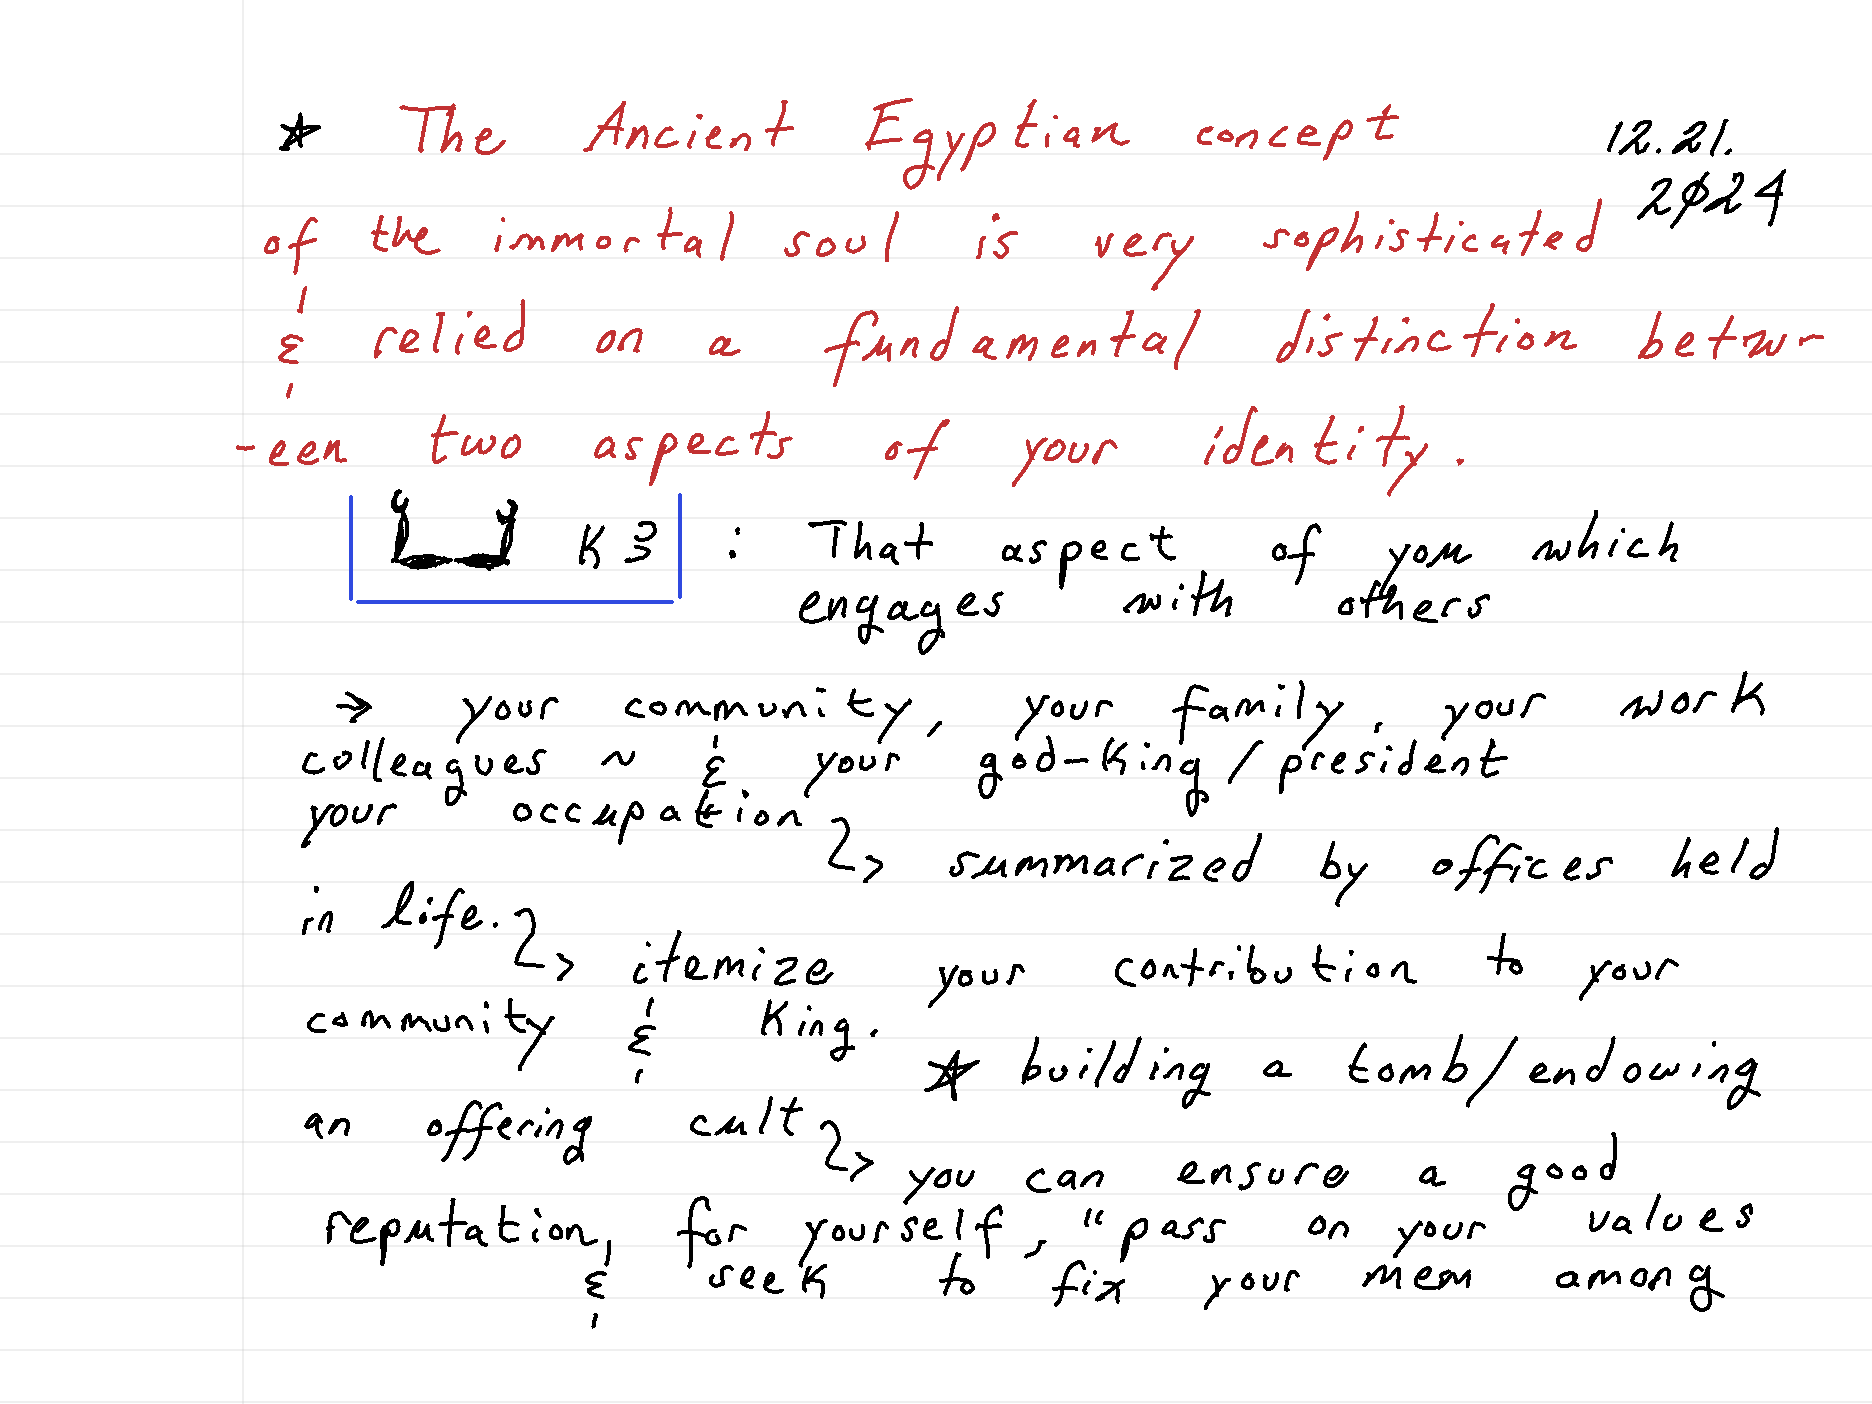 ☆ The Ancient Egyptian concept
12.21.
2024
of the immortal soul is very sophisticated
& relied on a fundamental distinction betw-
-een two aspects of your identity.
𓂓 Kꜣ : That aspect of you which
engages with others
→ your community, your family, your work
colleagues ~ & your god-king/president
your occupation ↪ summarized by offices held
in life. ↪ itemize your contribution to your
community & King.
☆ building a tomb/endowing
an offering cult ↪ you can ensure a good
reputation, for yourself, "pass on your values
& seek to fix your mem among